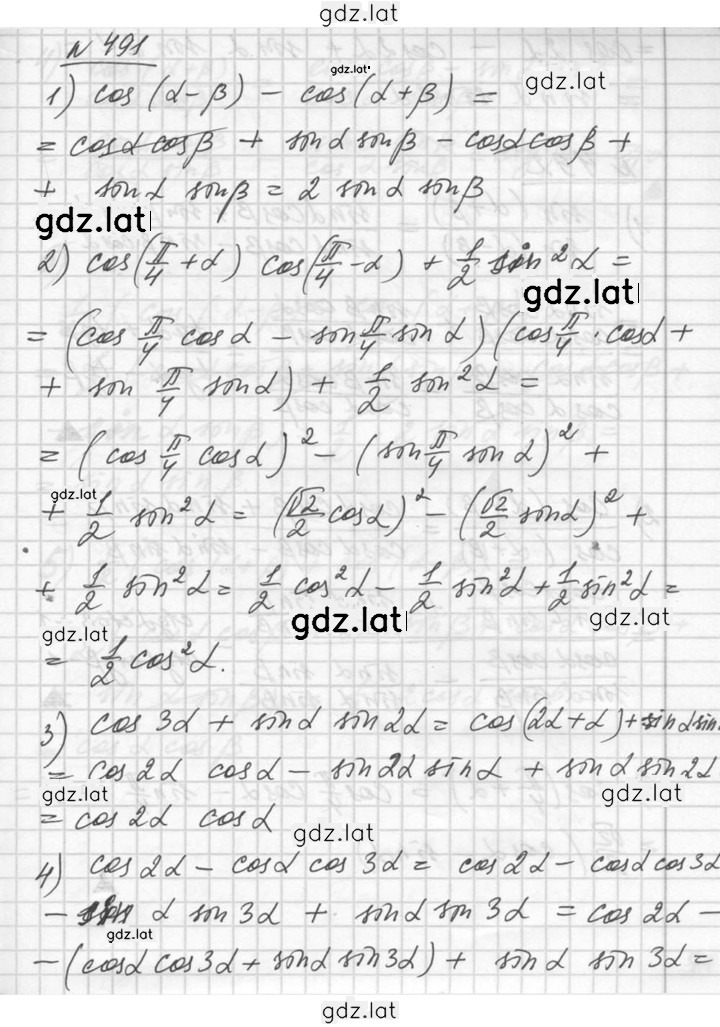 gdz.lat
№ 491
gdz.lat
1) cos (α-β) - cos(α+β) =
gdz.lat
= cosα cosβ + sinα sinβ - cosα cosβ +
+ sinα sinβ = 2 sinα sinβ
gdz.lat
2) cos(π/4 + α) cos(π/4 - α) + 1/2 sin²α =
gdz.lat
= (cos π/4 cosα - sin π/4 sin α) (cos π/4 · cosα +
+ sin π/4 sinα) + 1/2 sin²α =
= (cos π/4 cosα)² - (sin π/4 sin α)² +
gdz.lat
+ 1/2 sin²α = (√2/2 cosα)² - (√2/2 sinα)² +
+ 1/2 sin²α = 1/2 cos²α - 1/2 sin²α + 1/2 sin²α =
gdz.lat
gdz.lat
gdz.lat
= 1/2 cos²α.
3) cos 3α + sinα sin2α = cos(2α+α) + sinα sin
= cos2α cosα - sin2α sinα + sinα sin2α
gdz.lat
gdz.lat
= cos2α cosα
gdz.lat
4) cos2α - cosα cos3α = cos2α - cosα cos3α
- sin α sin3α + sinα sin3α = cos2α -
gdz.lat
- (cosα cos3α + sinα sin3α) + sinα sin3α =
gdz.lat